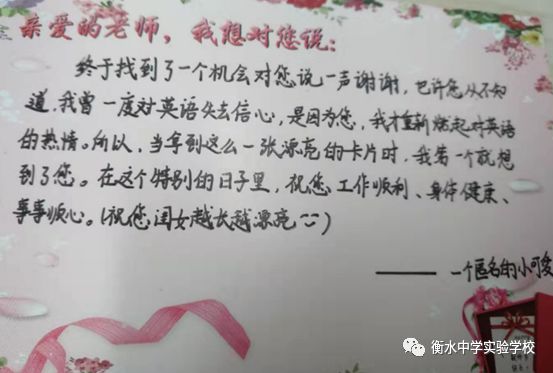 亲爱的老师，我想对您说：
终于找到了一个机会对您说一声谢谢，也许您从不知
道，我曾一度对英语失去信心，是因为您，我才重新燃起对英语
的热情。所以，当拿到这么一张漂亮的卡片时，我第一个就想
到了您。在这个特别的日子里，祝您工作顺利、身体健康、
事事顺心。（祝您闺女越长越漂亮）
——一个匿名的小可爱
衡水中学实验学校